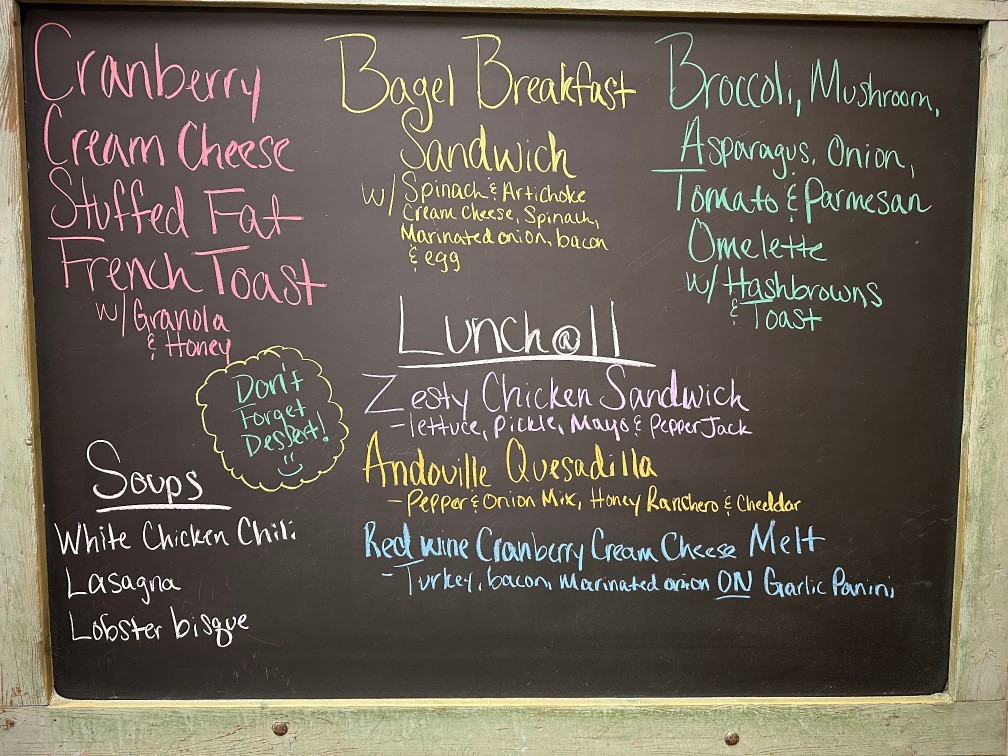 Cranberry
Cream Cheese
Stuffed Fat
French Toast
w/ Granola
& Honey
Bagel Breakfast
Sandwich
w/ Spinach & Artichoke
Cream Cheese, Spinach,
Marinated onion, bacon
& egg
Broccoli, Mushroom,
Asparagus, Onion,
Tomato & Parmesan
Omelette
w/ Hashbrowns
& Toast
Don't
Forget
Dessert!
Soups
White Chicken Chili
Lasagna
Lobster bisque
Lunch @ 11
Zesty Chicken Sandwich
- lettuce, Pickle, Mayo & Pepper Jack
Andoville Quesadilla
- Pepper & Onion Mix, Honey Ranchero & Cheddar
Red wine Cranberry Cream Cheese Melt
- Turkey, bacon, Marinated onion ON Garlic Panini